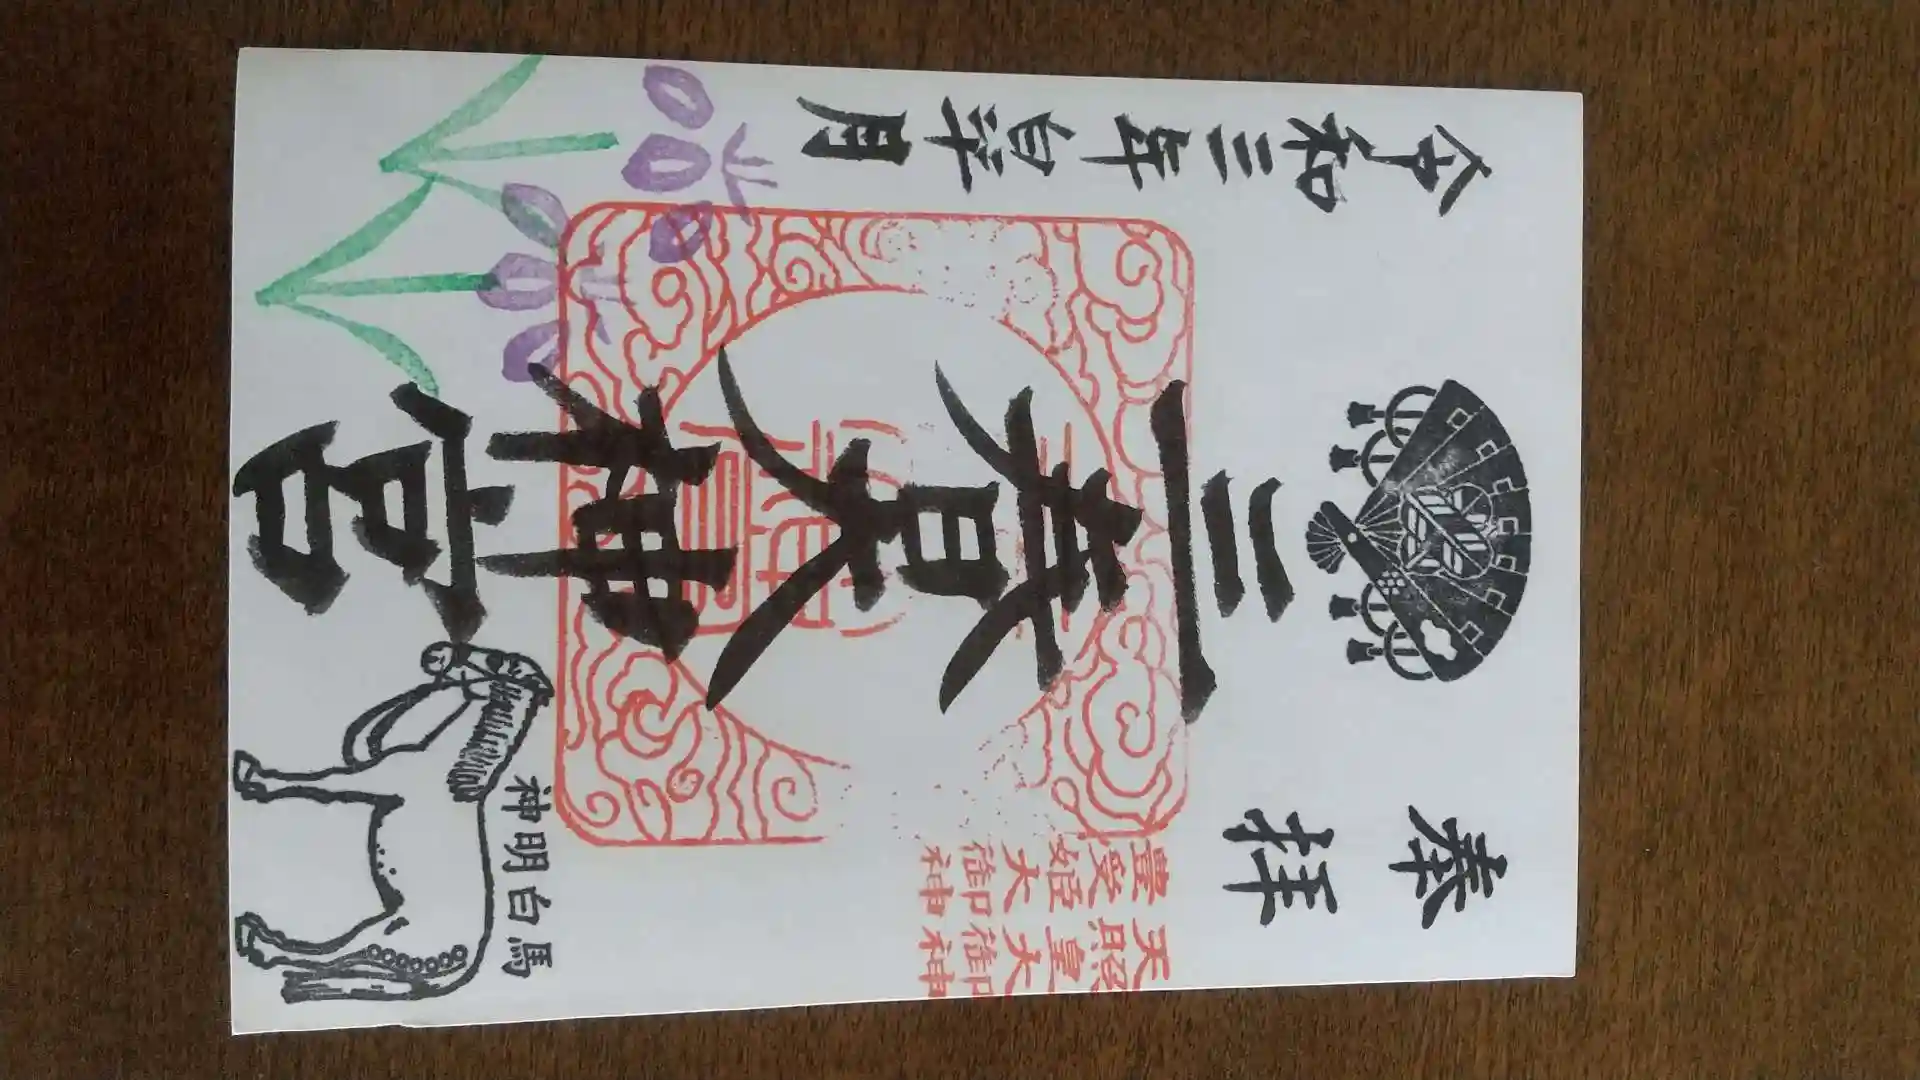 奉拝
天照皇大御神
豊受姫大御神
三春大神宮
神明白馬
令和三年皐月